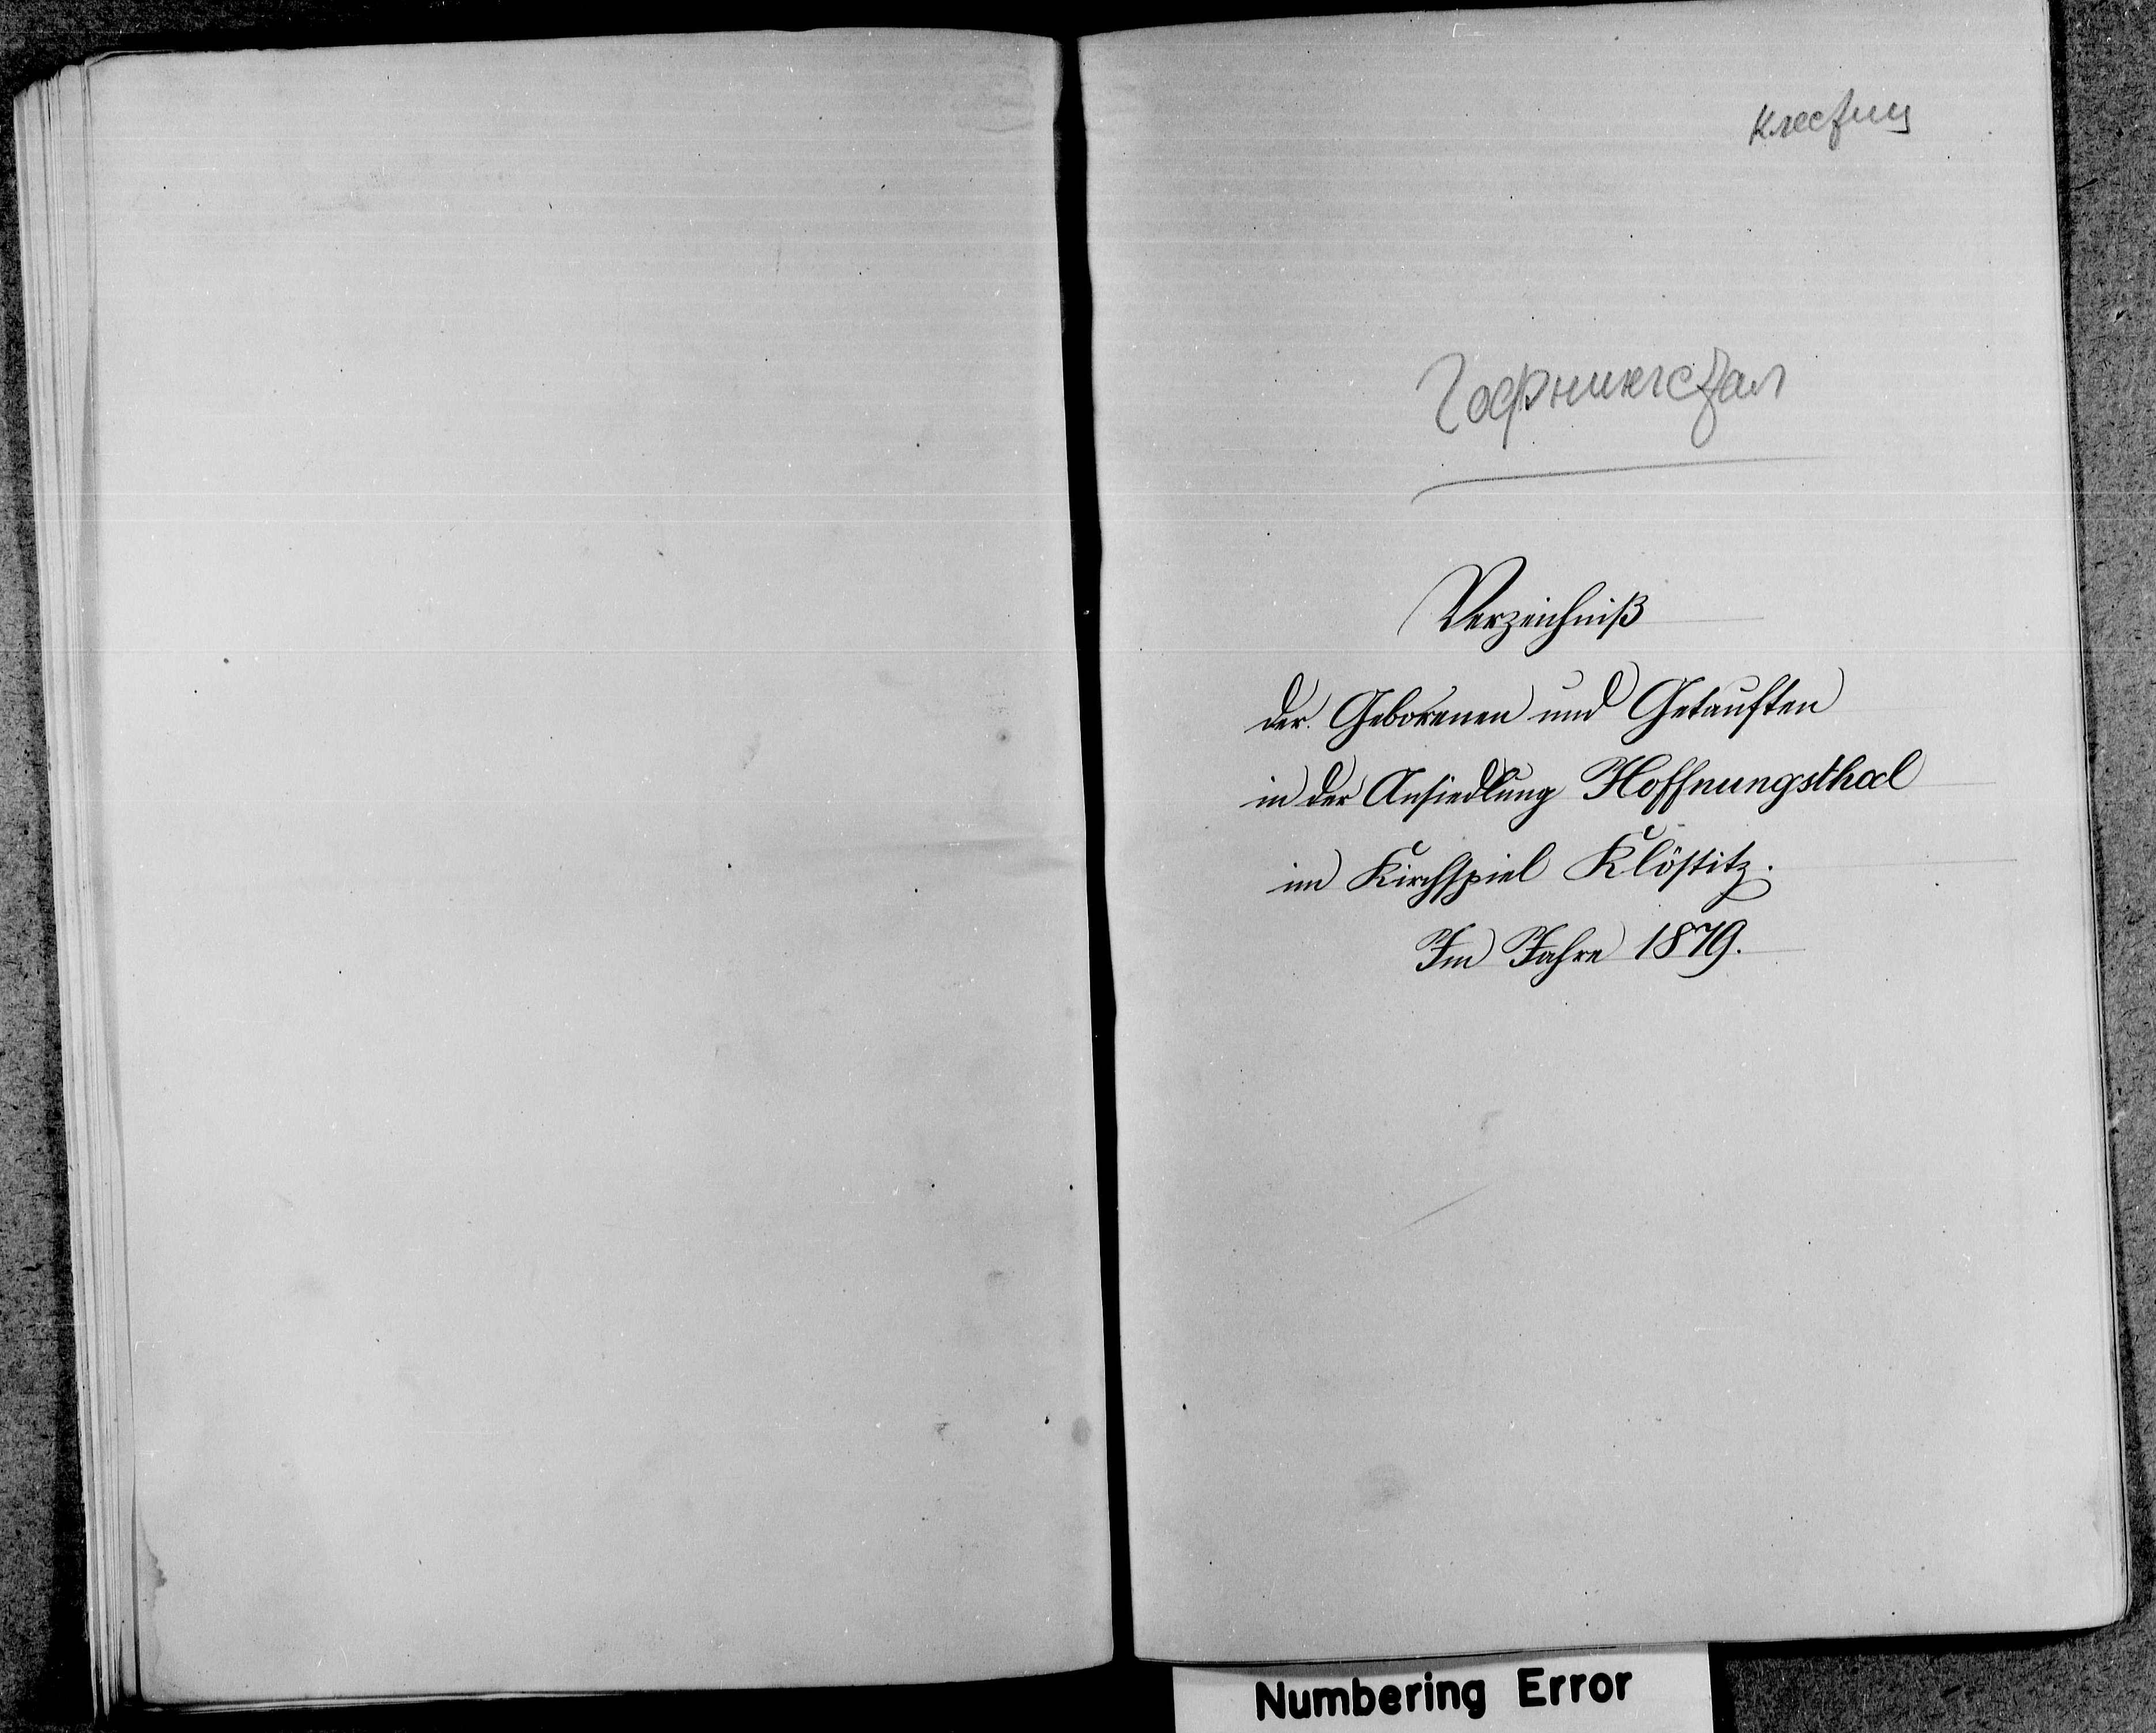 Клестиц
Гофнингстал
Verzeichniß
der Geborenen und Getauften
in der Ansiedlung Hoffnungsthal
im Kirchspiel Klöstitz.
Im Jahre 1879.
Numbering Error